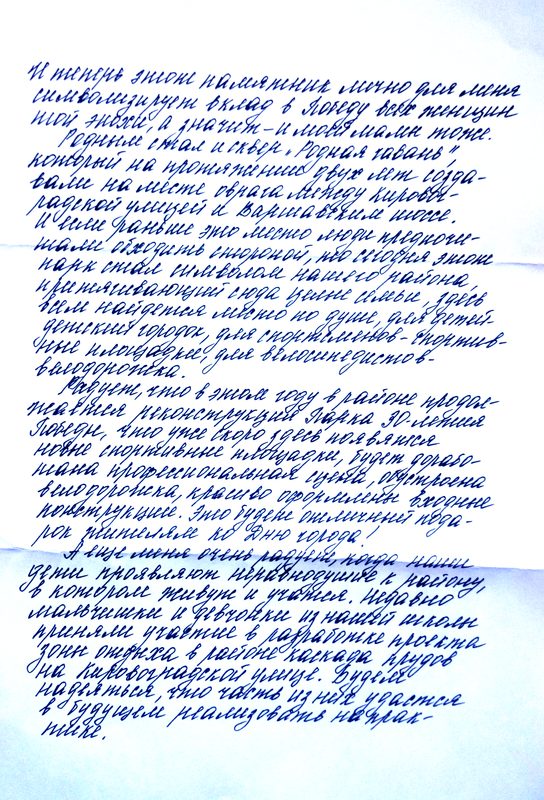 И теперь этот памятник лично для меня
символизирует вклад в Победу всех женщин
той эпохи, а значит – и моей мамы тоже.
Родным стал и сквер „Родная гавань",
который на протяжении двух лет созда-
вали на месте оврага между Кирово-
градской улицей и Варшавским шоссе.
И если раньше это место люди предпочи-
тали обходить стороной, то сегодня этот
парк стал символом нашего района,
притягивающий сюда целые семьи, здесь
всем найдется место по душе, для детей-
детский городок, для спортсменов - спортив-
ные площадки, для велосипедистов-
велодорожка.
Радует, что в этом году в районе продол-
жается реконструкция Парка 30-летия
Победы, что уже скоро здесь появятся
новые спортивные площадки, будет дорабо-
тана профессиональная сцена, обустроена
велодорожка, красиво оформлены входные
конструкции. Это будет отличный пода-
рок жителям ко Дню города!
А еще меня очень радует, когда наши
дети проявляют неравнодушие к району,
в котором живут и учатся. Недавно
мальчишки и девчонки из нашей школы
приняли участие в разработке проекта
зоны отдыха в районе каскада прудов
на Кировоградской улице. Будем
надеяться, что часть из них удастся
в будущем реализовать на прак-
тике.